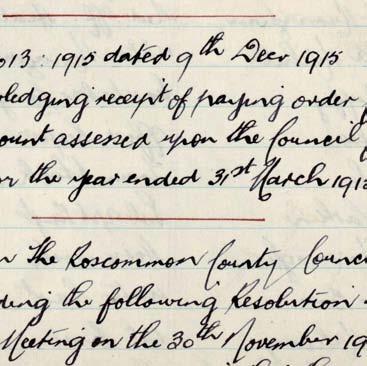 013: 1915 dated 9th Decr 1915
ledging receipt of paying order
ount assessed upon the Council
the year ended 31st March 191
The Roscommon County Counc
ding the following Resolution
Meeting on the 30th November 19